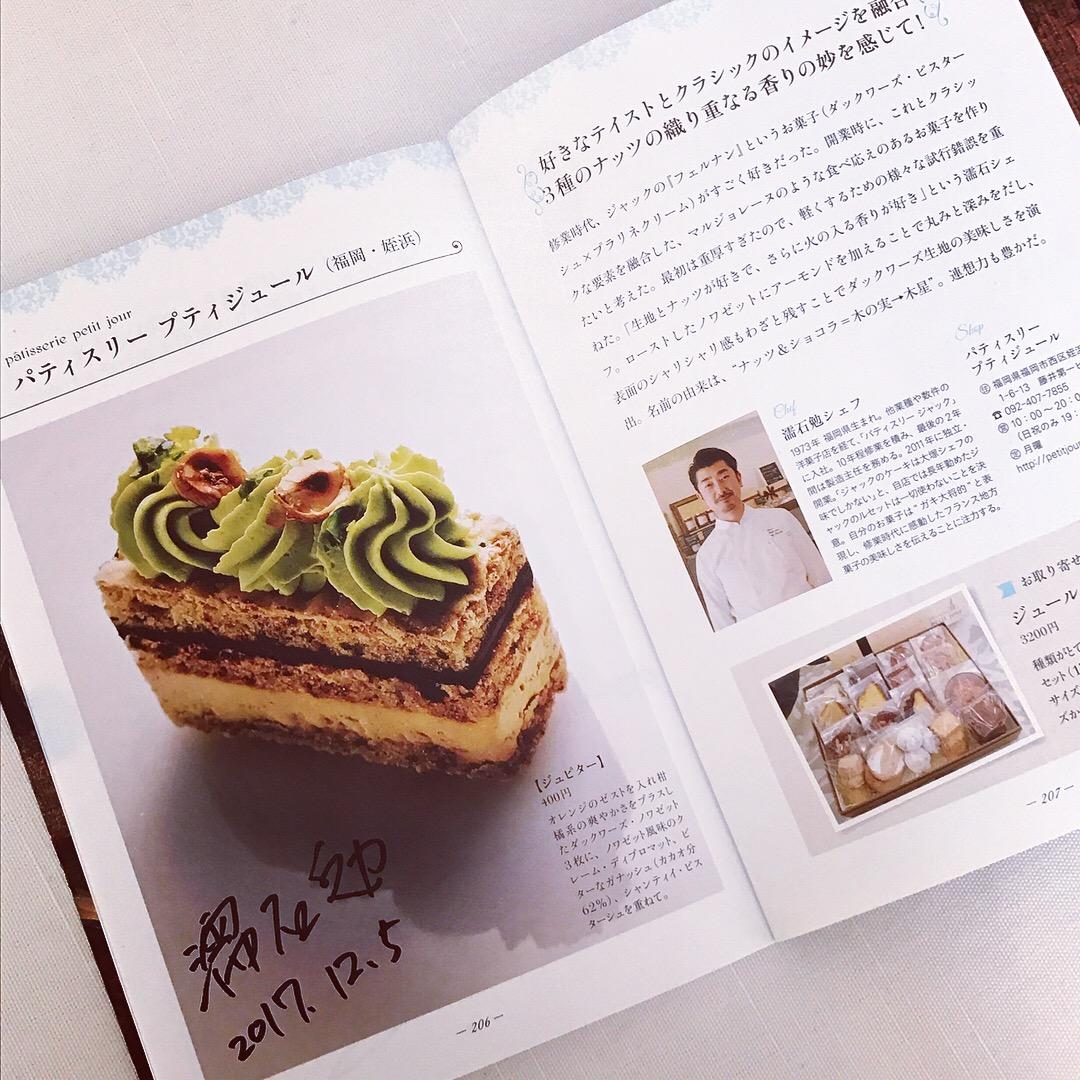 pâtisserie petit jour
パティスリー プティジュール(福岡・姪浜)
【ジュピター】
400円
オレンジのゼストを入れ柑
橘系の爽やかさをプラスし
たダックワーズ・ノワゼット
3枚に、ノワゼット風味のク
レーム・ディプロマット、ビ
ターなガナッシュ(カカオ分
62%)、シャンティイ・ピス
ターシュを重ねて。
濡石勉
2017.12.5
— 206 —
好きなテイストとクラシックのイメージを融合
3種のナッツの織り重なる香りの妙を感じて!
修業時代、ジャックの『フェルナン』というお菓子(ダックワーズ・ピスター
シュ×プラリネクリーム)がすごく好きだった。開業時に、これとクラシッ
クな要素を融合した、マルジョレーヌのような食べ応えのあるお菓子を作り
たいと考えた。最初は重厚すぎたので、軽くするための様々な試行錯誤を重
ねた。「生地とナッツが好きで、さらに火の入る香りが好き」という濡石シェ
フ。ローストしたノワゼットにアーモンドを加えることで丸みと深みをだし、
表面のシャリシャリ感もわざと残すことでダックワーズ生地の美味しさを演
出。名前の由来は、“ナッツ&ショコラ=木の実→木星”。連想力も豊かだ。
Chef
濡石勉シェフ
1973年 福岡県生まれ。他業種や数件の
洋菓子店を経て、「パティスリー ジャック」
に入社。10年程修業を積み、最後の2年
間は製造主任を務める。2011年に独立・
開業。「ジャックのケーキは大塚シェフの
味でしかない」と、自店では長年勤めたジ
ャックのルセットは一切使わないことを決
意。自分のお菓子は“ガキ大将的”と表
現し、修業時代に感動したフランス地方
菓子の美味しさを伝えることに注力する。
Shop
パティスリー
プティジュール
㊟福岡県福岡市西区姪浜
1-6-13 藤井第一ビ
☎092-407-7855
10:00〜20:0
(日祝のみ 19:
月曜
http://petitjou
お取り寄せ
ジュール
3200円
種類がとて
セット(1
サイズ
ズか
— 207 —